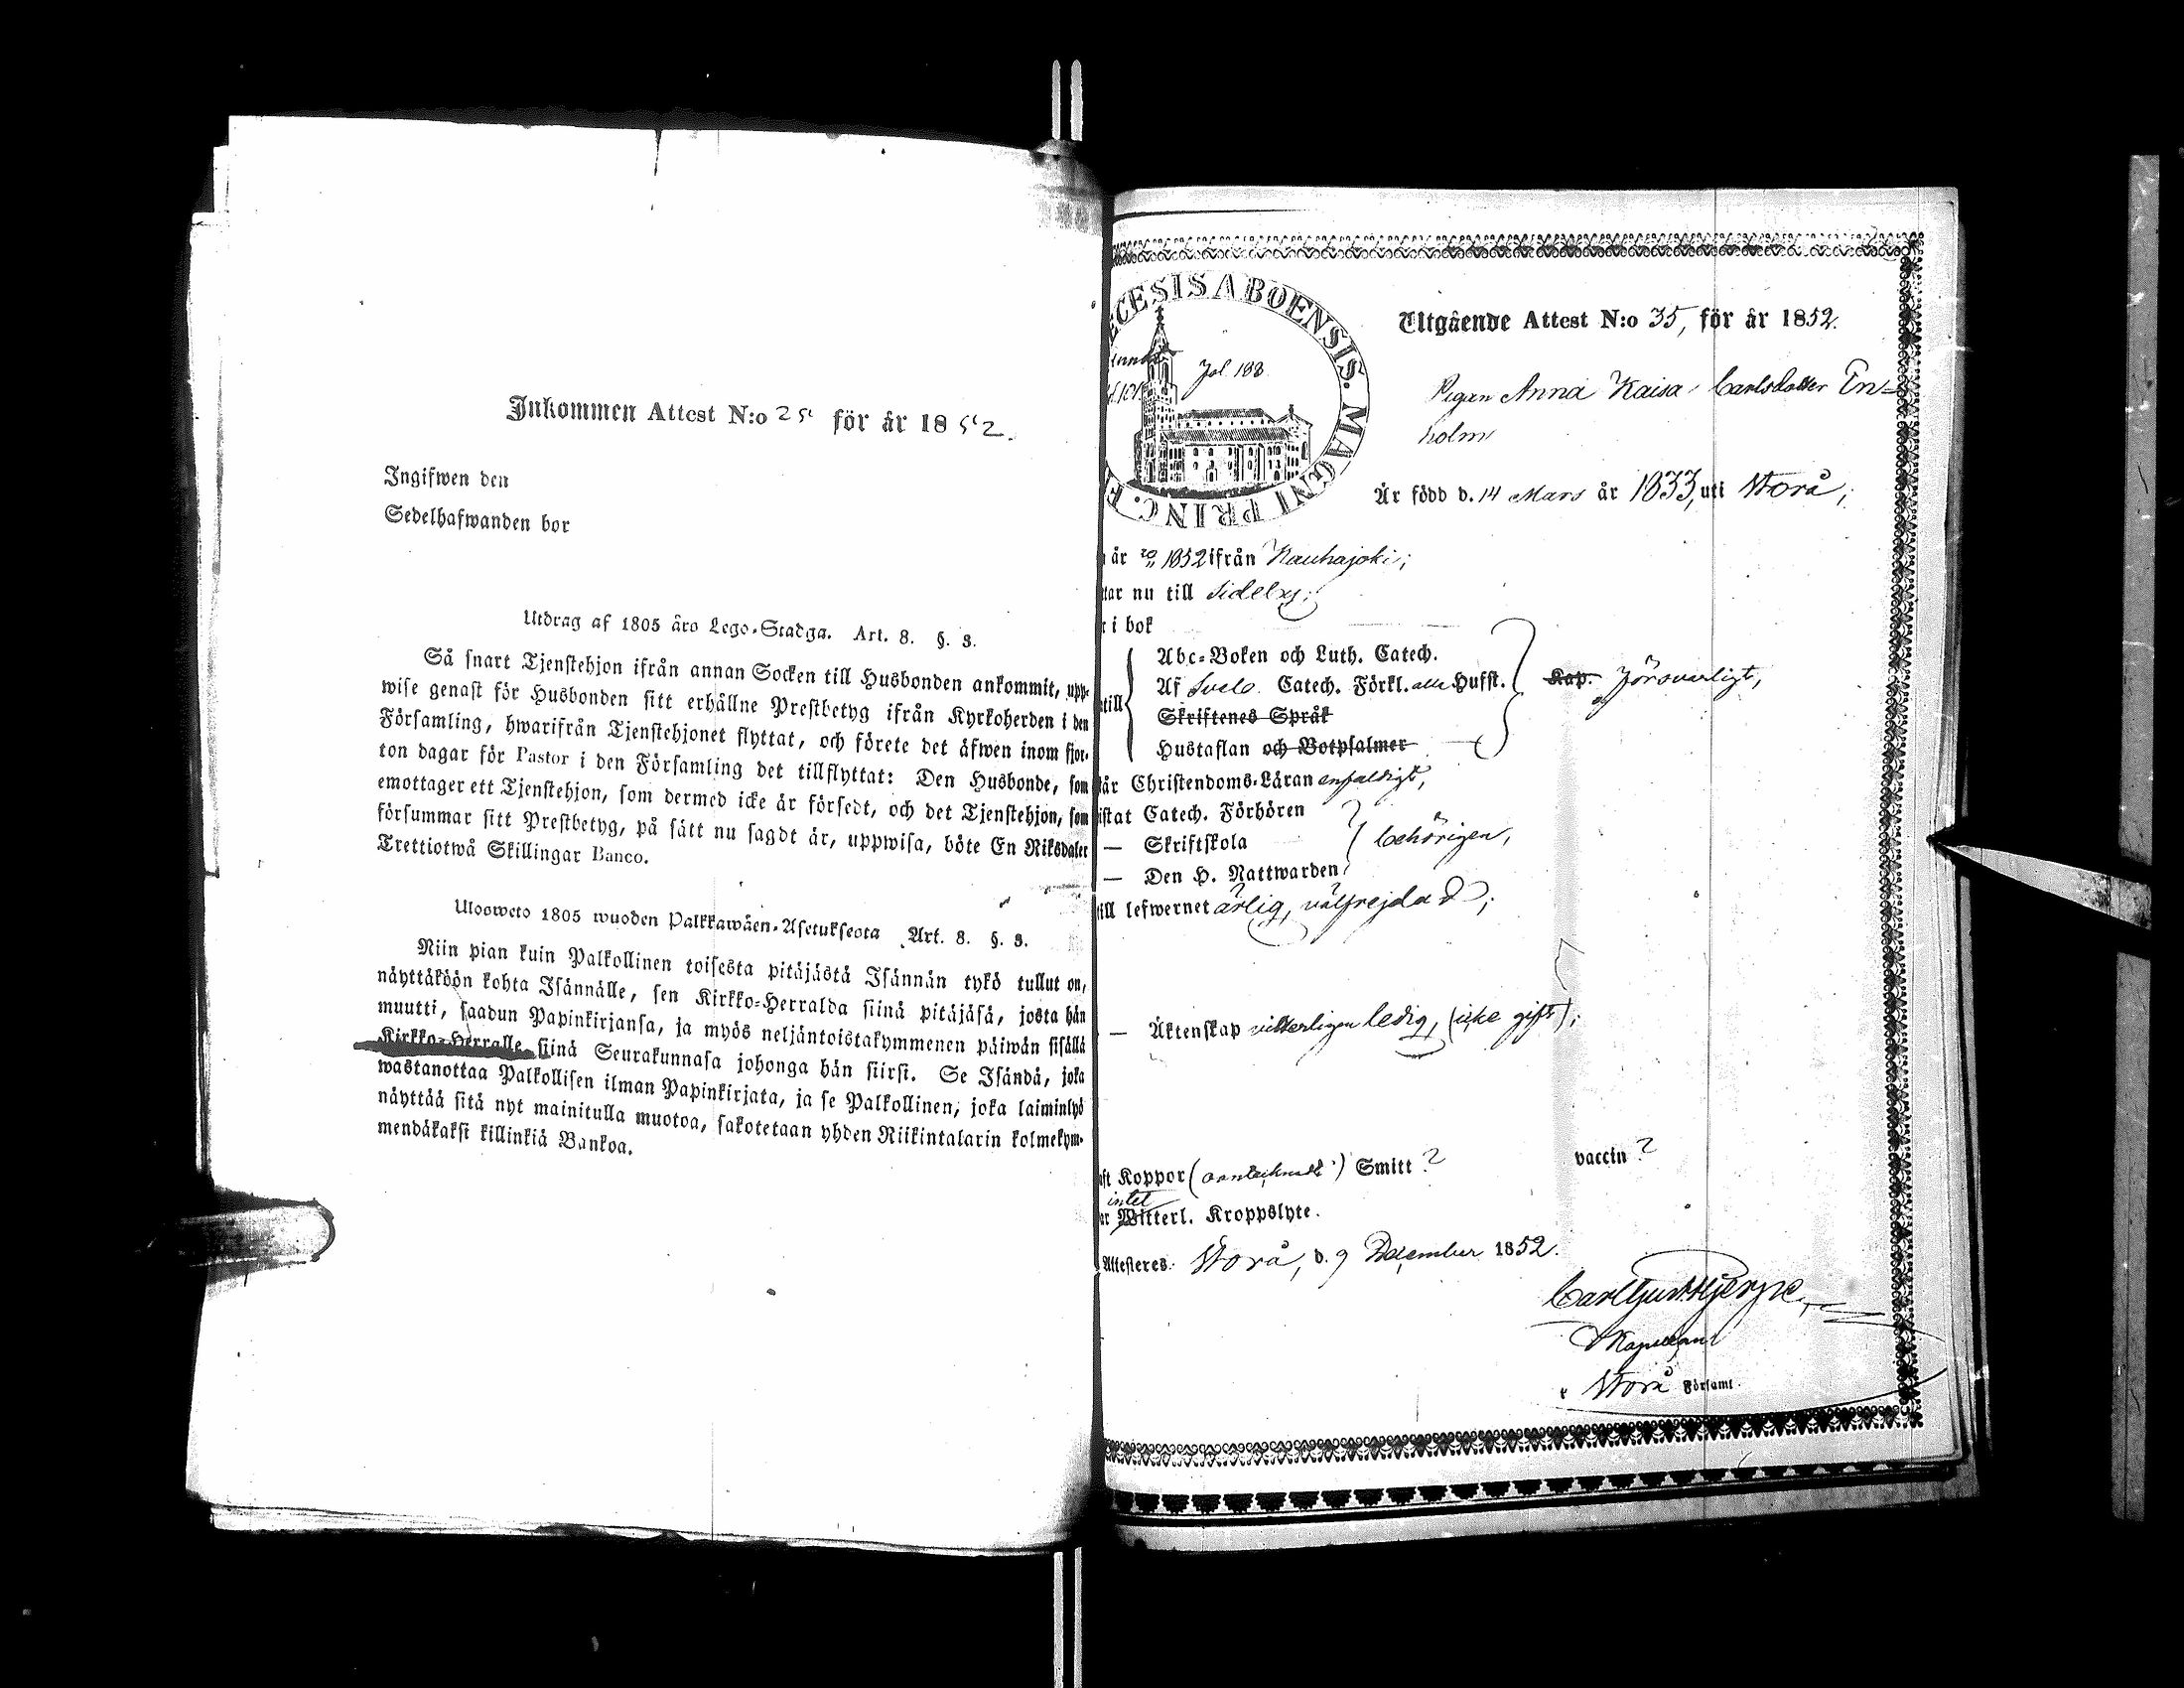 Inkommen Attest N:o 25 för år 1852.
Ingifwen den
Sedelhafwanden bor
Utdrag af 1805 års Lego-Stadga. Art. 8. §. 3.
Så snart Tjenstehjon ifrån annan Socken till Husbonden ankommit, upp-
wise genast för Husbonden sitt erhållne Prestbetyg ifrån Kyrkoherden i den
Församling, hwarifrån Tjenstehjonet flyttat, och förete det äfwen inom fjor-
ton dagar för Pastor i den Församling det tillflyttat: Den Husbonde, som
emottager ett Tjenstehjon, som dermed icke är försedt, och det Tjenstehjon, som
försummar sitt Prestbetyg, på sätt nu sagdt är, uppwisa, böte En Riksdaler
Trettiotwå Skillingar Banco.
Ulosweto 1805 wuoden Palkkawäen-Asetuksesta Art. 8. §. 3.
Niin pian kuin Palkollinen toisesta pitäjästä Isännän tykö tullut on,
näyttäköön kohta Isännälle, sen Kirkko-Herralda siinä pitäjäsä, josta hän
muutti, saadun Papinkirjansa, ja myös neljäntoistakymmenen päiwän sisällä
Kirkko-Herralle siinä Seurakunnasa johonga hän siirsi. Se Isändä, joka
wastanottaa Palkollisen ilman Papinkirjata, ja se Palkollinen, joka laiminlyö
näyttää sitä nyt mainitulla muotoa, sakotetaan yhden Riikintalarin kolmekym-
mendäkaksi killinkiä Bankoa.
ECESIS ABOENSIS. MAGNI PRINC. F
Fol. 188
Utgående Attest N:o 35, för år 1852.
Pigan Anna Kaisa Carlsdotter En-
holm
Är född d. 14 Mars år 1833, uti Storå;
år 1852 ifrån Kauhajoki;
tar nu till Sideby;
i bok
Abc-Boken och Luth. Catech.
Af Svebs. Catech. Förkl. alla Hufst.
Skriftenes Språk
Hustaflan och Botpsalmer
till
Kap. försvarligt,
tår Christendoms-Läran enfaldigt,
istat Catech. Förhören
— Skriftskola
behörigen,
— Den H. Nattwarden
till lefwernet ärlig, välfrejdad;
— Äktenskap vitterligen ledig, (icke gift);
ft Koppor ( ) Smitt ?
vaccin ?
intet
ar Witterl. Kroppslyte.
Attesteres. Storå, d. 9 December 1852.
Carl Gust. Hjerpe,
Kapellan
Storå Församl.